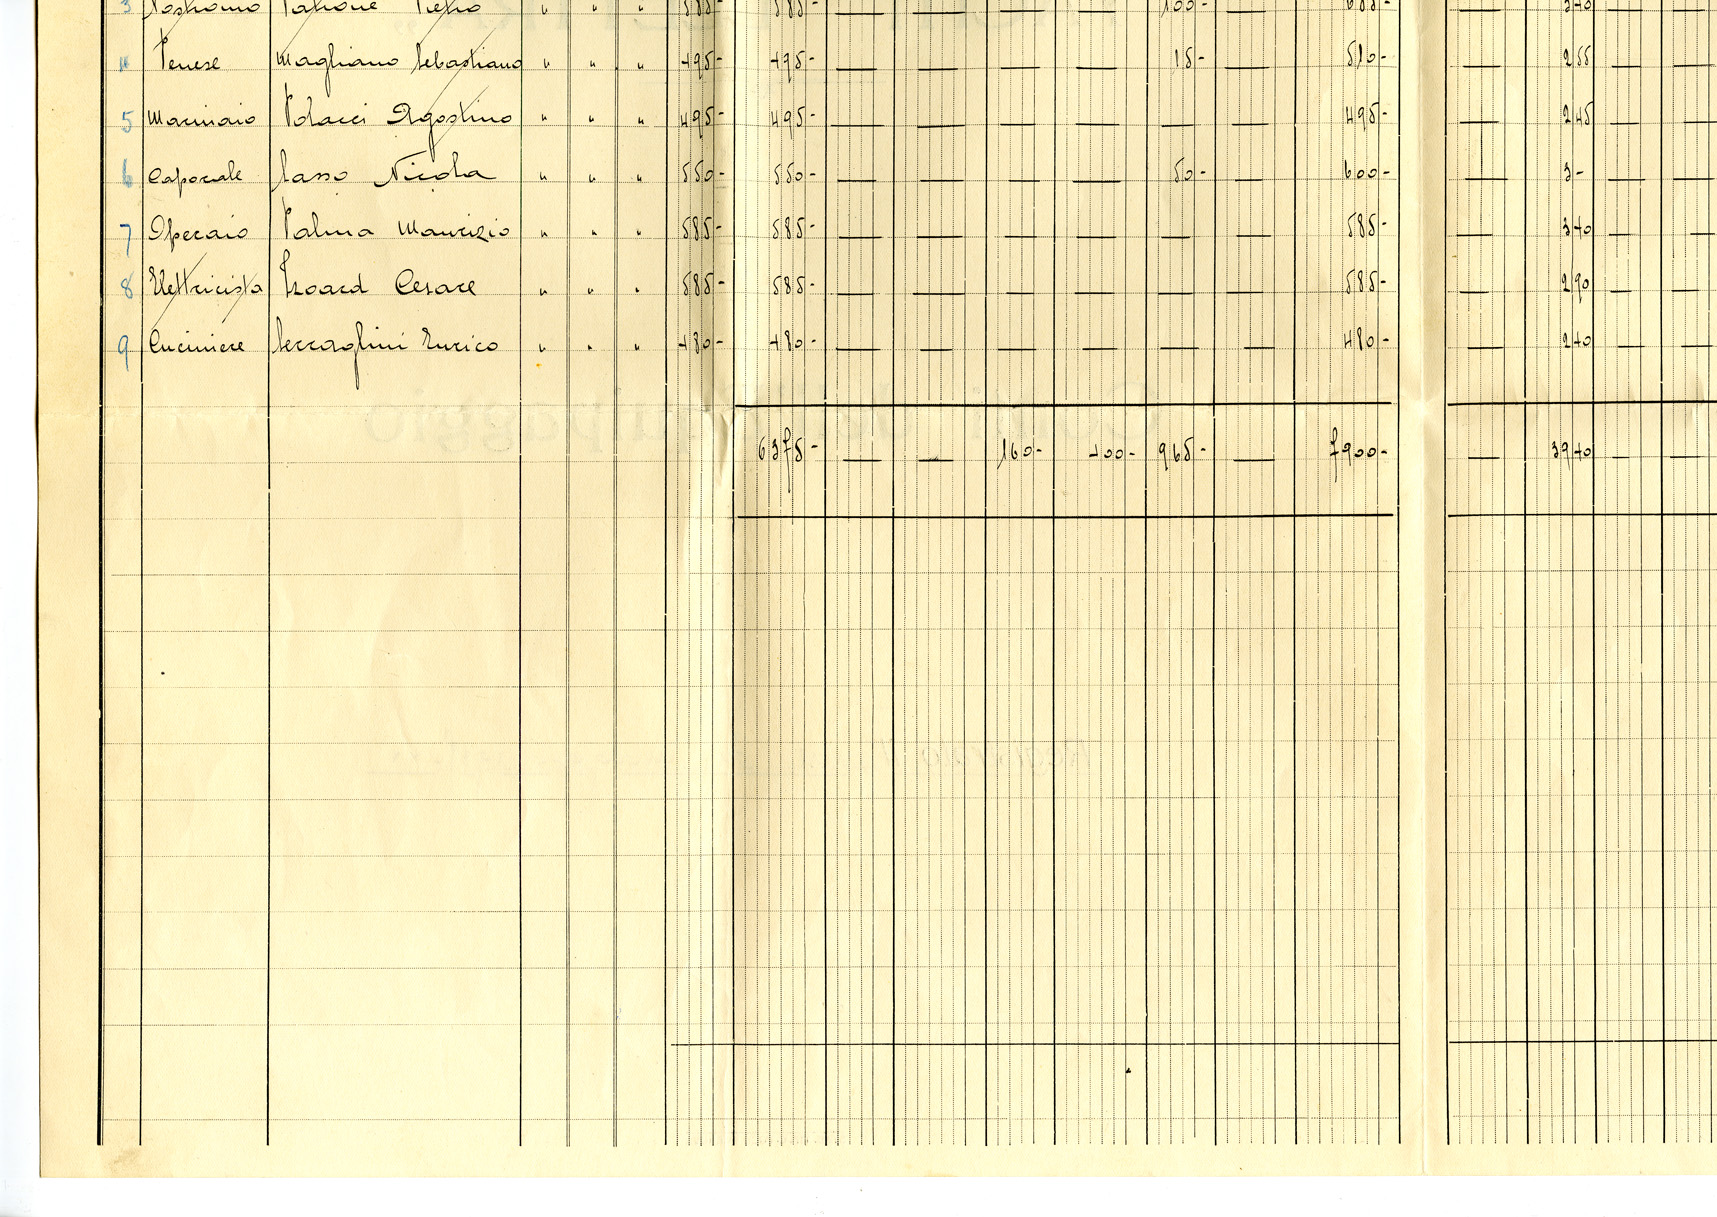 3 Nostromo Patrone Pietro " " " 585- 585- — — — — 100- — 685- — 340
4 Penese Magliano Sebastiano " " " 495- 495- — — — — 15- — 510- — 255 —
5 Marinaio Polacci Agostino " " " 495- 495- — — — — — — 495- — 245 — —
6 Caporale Sasso Nicola " " " 550- 550- — — — — 50- — 600- — 3- — —
7 Operaio Palma Maurizio " " " 585- 585- — — — — — — 585- — 340 — —
8 Elettricista Isoard Cesare " " " 585- 585- — — — — — — 585- — 290 — —
9 Cuciniere Serraglini Enrico " " " 480- 480- — — — — — — 480- — 240 — —
6375- — — 160- 400- 965- — 7900- — 3940